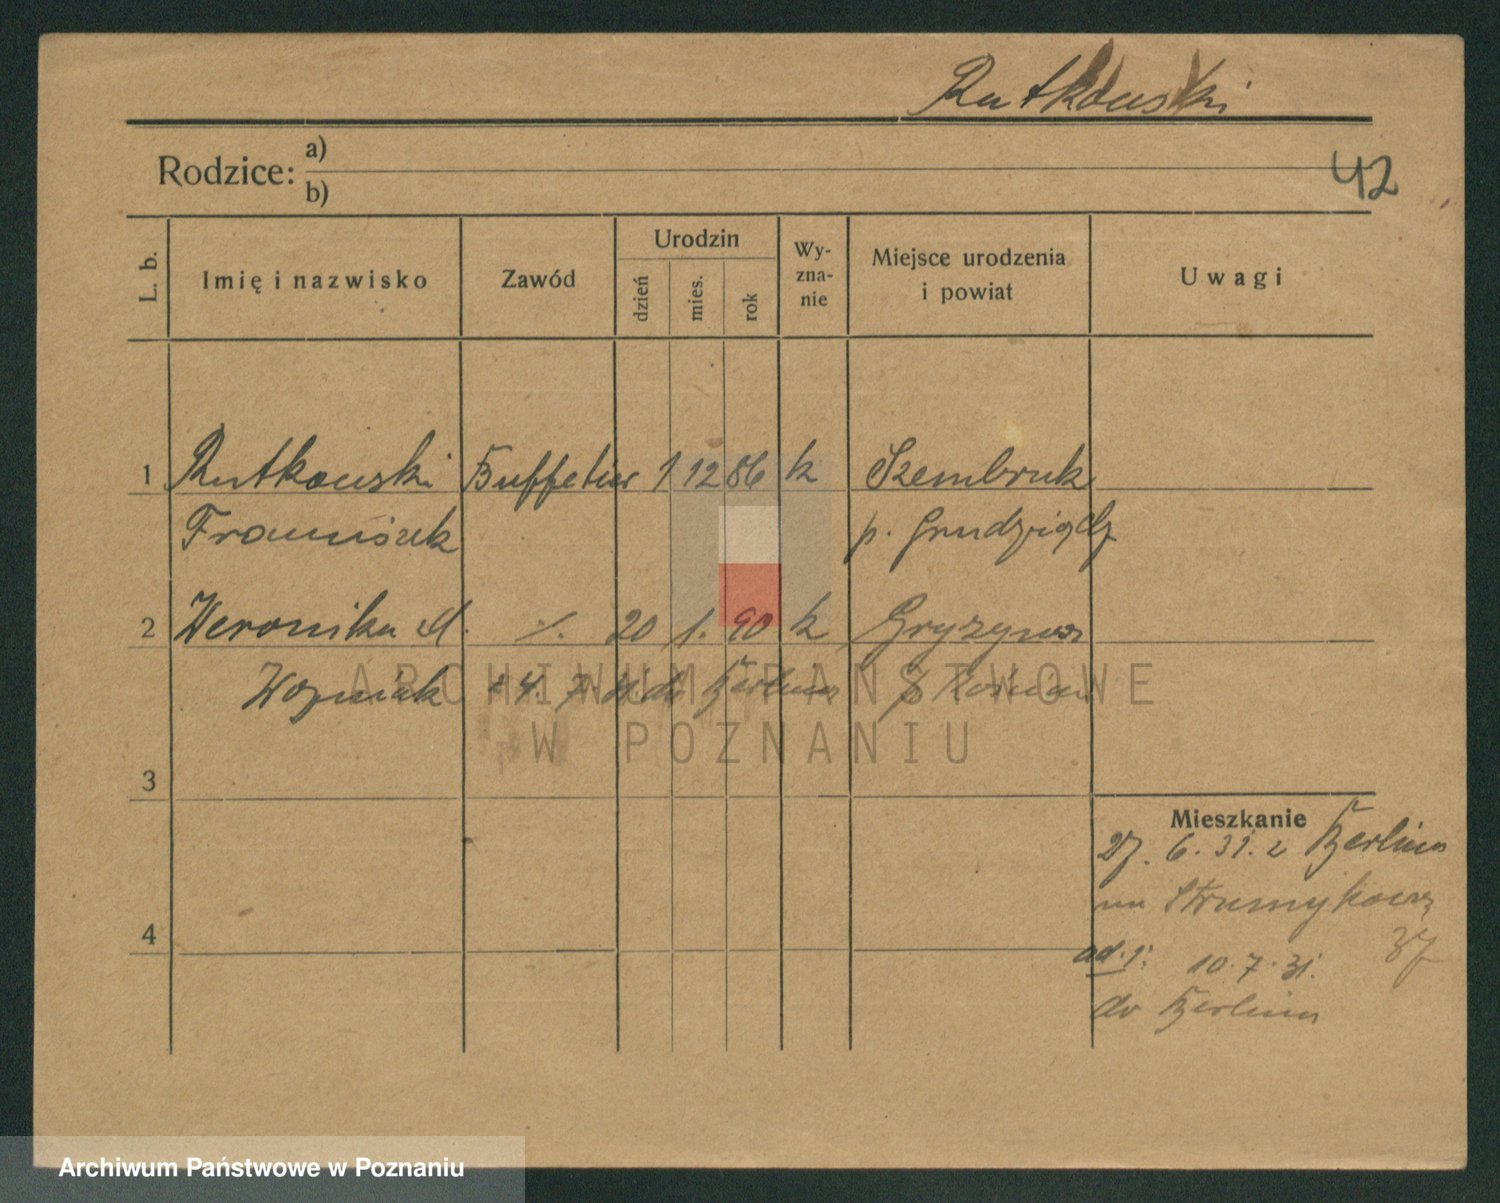 Rutkowski
Rodzice: a)
b)
42
L. b.
Imię i nazwisko
Zawód
Urodzin
dzień
mies.
rok
Wy-
zna-
nie
Miejsce urodzenia
i powiat
Uwagi
1 Rutkowski Buffetier 1 12 86 k Szembruk
Franciszek p. Grudziądz
2 Weronika d. ·/. 20 1. 90 k Gryzyna
Woźniak 24. 7. do Berlina p Kościan
ARCHIWUM PAŃSTWOWE
W POZNANIU
3
Mieszkanie
27. 6. 31. z Berlina
na Strumykową
37
4
ad. 1: 10. 7. 31.
do Berlina
Archiwum Państwowe w Poznaniu